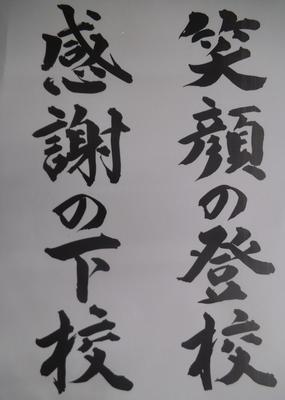 笑顔の登校
感謝の下校